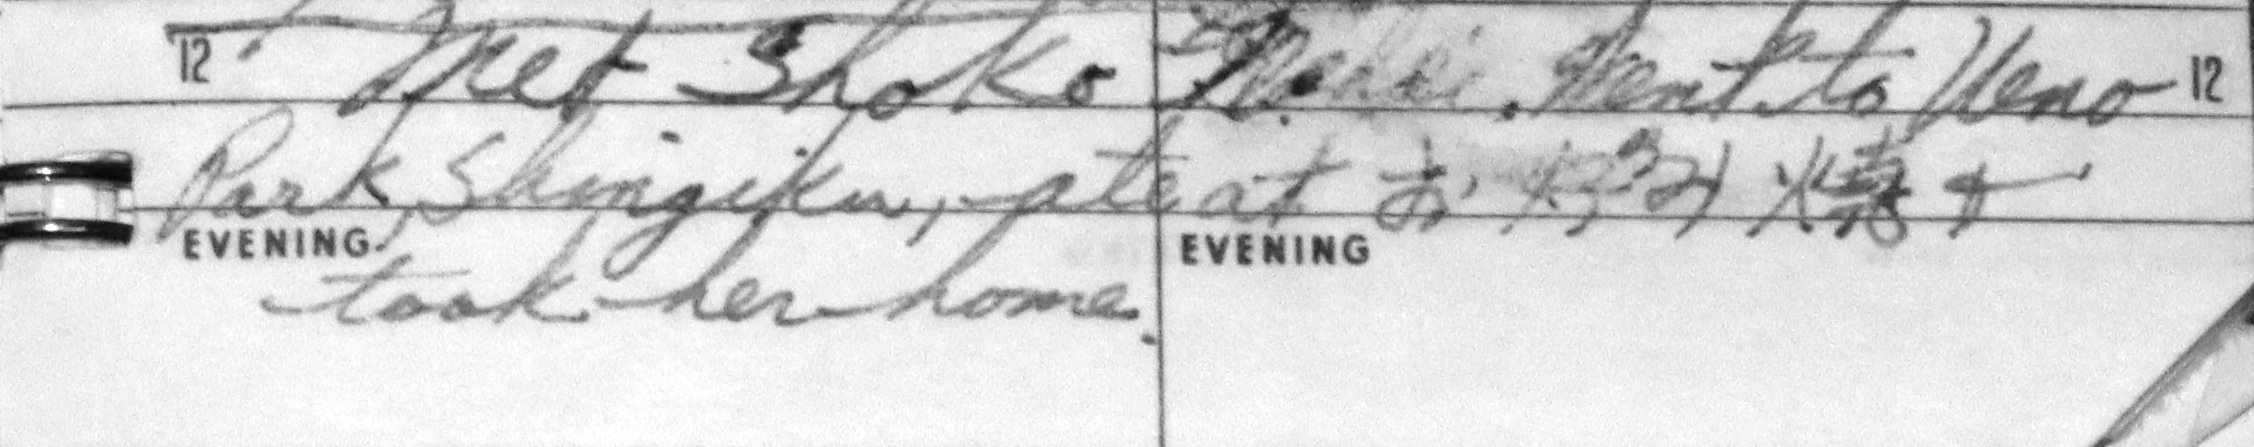 12 Met Shoko Went to Ueno 12
Park, Shingiku, ate at お好み焼き
EVENING EVENING
took her home.